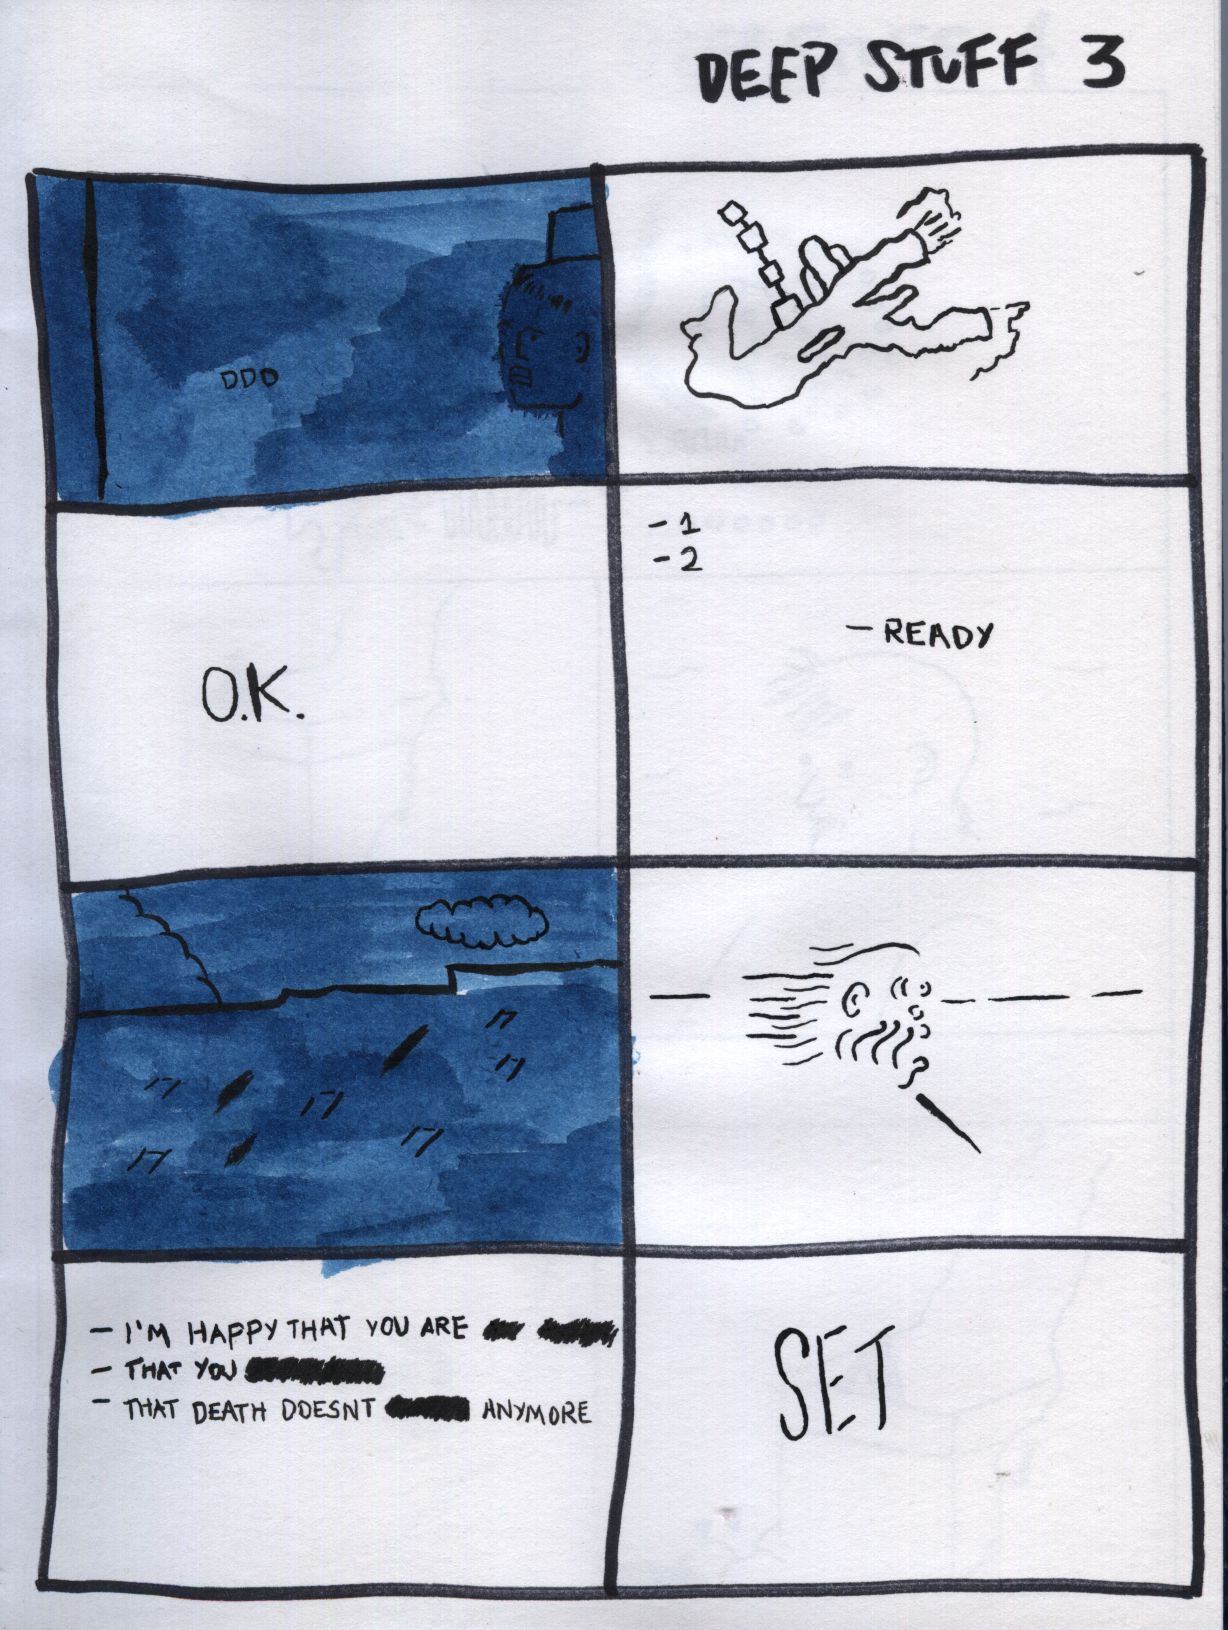 DEEP STUFF 3
DDD
O.K.
- 1
- 2
- READY
- I'M HAPPY THAT YOU ARE
- THAT YOU
- THAT DEATH DOESNT ANYMORE
SET